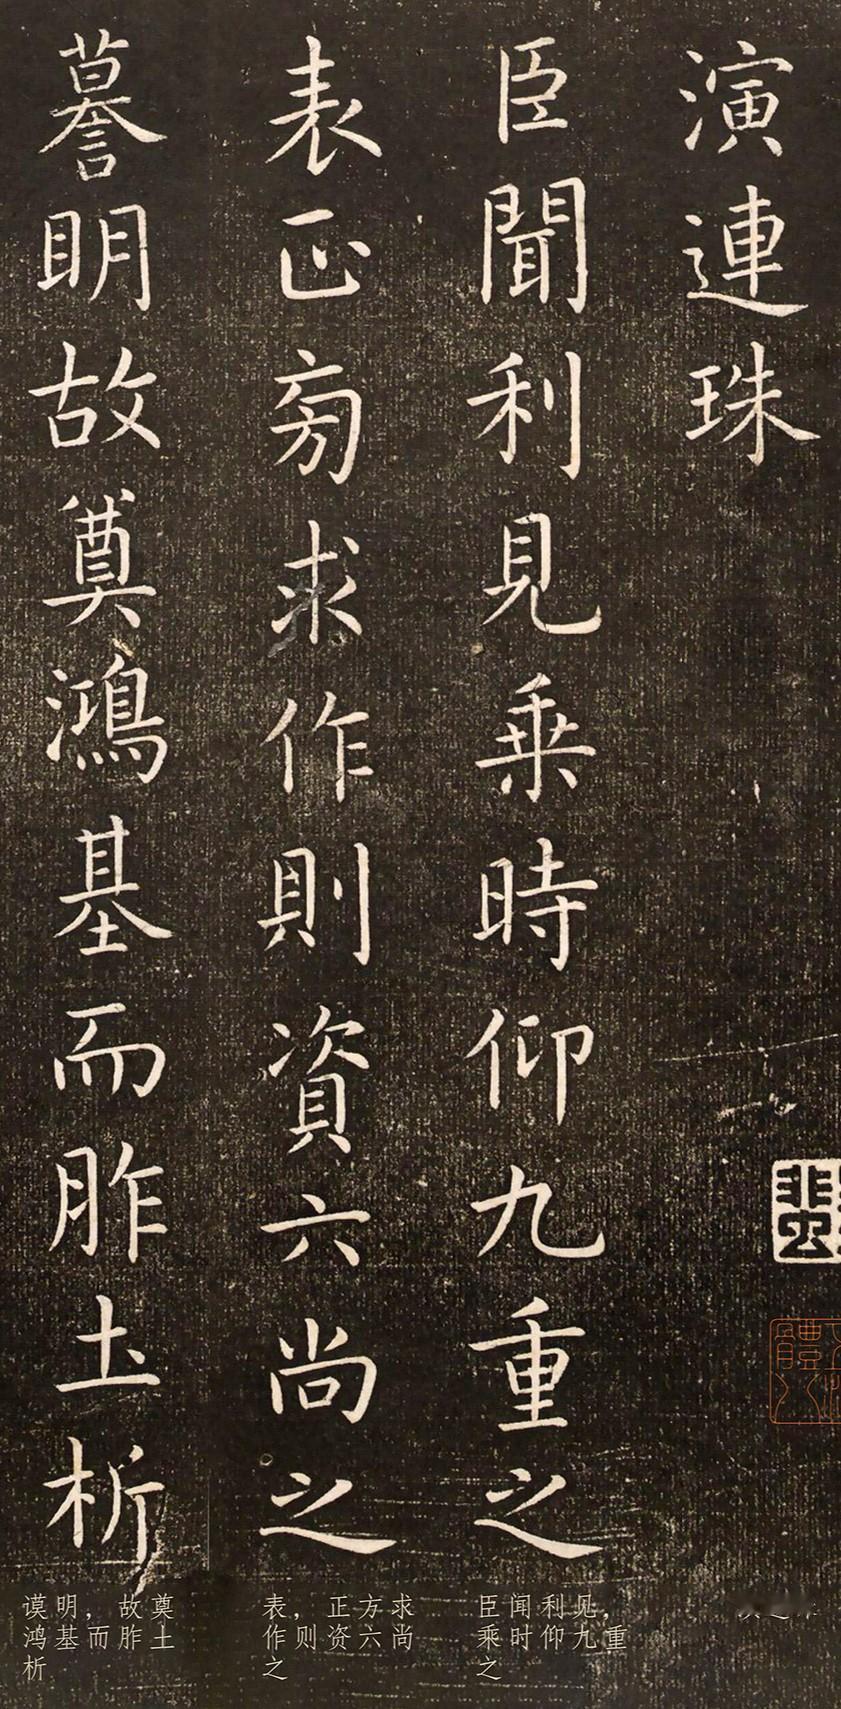 演連珠
臣聞利見乗時仰九重之
表正旁求作則資六尚之
謩明故奠鴻基而胙土析
臣闻利见，
乘时仰九重
之
表，正方求
作则资六尚
之
谟明，故奠
鸿基而胙土
析